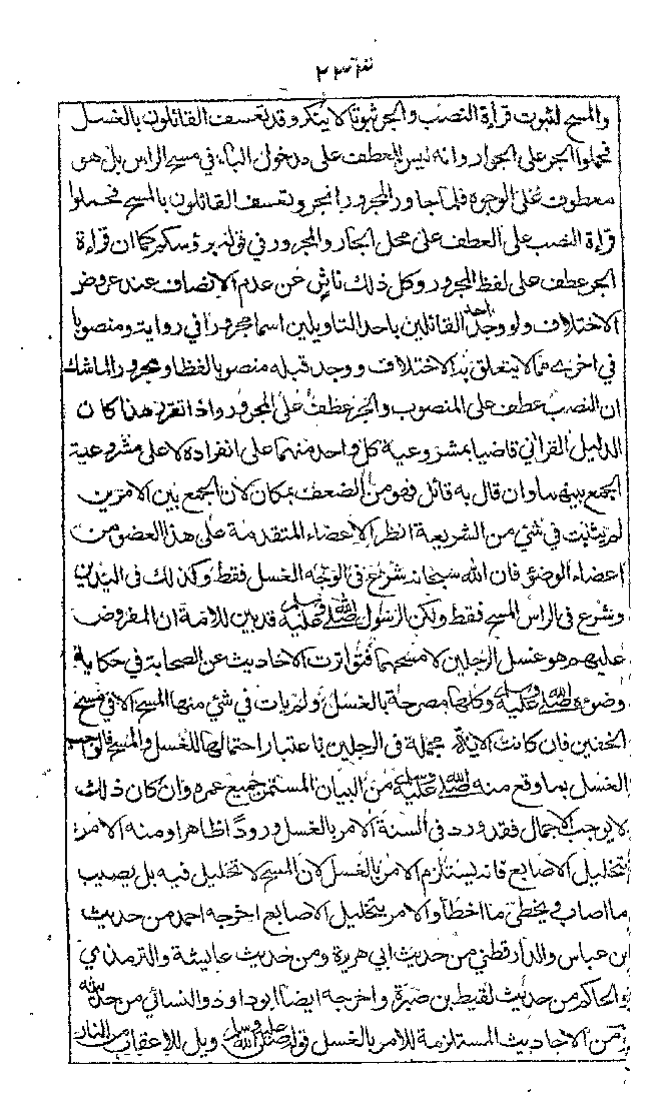 والمسح لثبوت قراءة النصب والجر ثبوتا لا ينكر وقد تعسف القائلون بالغسل
فحملوا الجر على الجوار وانه ليس للعطف على مدخول الباء في مسح الراس بل هو
معطوف على الوجوه فلما جاور المجرور انجر وتعسف القائلون بالمسح فحملوا
قراءة النصب على العطف على محل الجار والمجرور في قوله برؤسكم كما ان قراءة
الجر عطف على لفظ المجرور وكل ذلك ناش عن عدم الانصاف عند عروض
الاختلاف ولو وجد احد القائلين باحد التاويلين اسما مجرورا في رواية ومنصوبا
في اخرى مما لا يتعلق به الاختلاف ووجد قبله منصوبا لفظا ومجرورا لما شك
ان النصب عطف على المنصوب والجر عطف على المجرور واذا تقرر هذا كان
الدليل القراني قاضيا بمشروعية كل واحد منهما على انفراده لا على مشروعية
الجمع بينهما وان قال به قائل فهو من الضعف بمكان لان الجمع بين الامرين
لم يثبت في شئ من الشريعة انظر الاعضاء المتقدمة على هذا العضو من
اعضاء الوضوء فان الله سبحانه شرع في الوجه الغسل فقط وكذلك في اليدين
وشرع في الراس المسح فقط ولكن الرسول صلى الله عليه وسلم قد بين للامة ان المفروض
عليهم هو غسل الرجلين لا مسحهما فتواترت الاحاديث عن الصحابة في حكاية
وضوءه صلى الله عليه وسلم وكلها مصرحة بالغسل ولم يات في شئ منها المسح الا في مسح
الخفين فان كانت الاية مجملة في الرجلين باعتبار احتمالها للغسل والمسح فالواجب
الغسل بما وقع منه صلى الله عليه وسلم من البيان المستمر جميع عمره وان كان ذلك
لا يوجب الاجمال فقد ورد في السنة الامر بالغسل ورودا ظاهرا ومنه الامر
بتخليل الاصابع فانه يستلزم الامر بالغسل لان المسح لا تخليل فيه بل يصيب
ما اصاب ويخطئ ما اخطا والامر بتخليل الاصابع اخرجه احمد من حديث
ابن عباس والدارقطني من حديث ابي هريرة ومن حديث عايشة والترمذي
والحاكم من حديث لقيط بن صبرة واخرجه ايضا ابوداود والنسائي من حديثه
ومن الاحاديث المستلزمة للامر بالغسل قوله صلى الله عليه وسلم ويل للاعقاب من النار